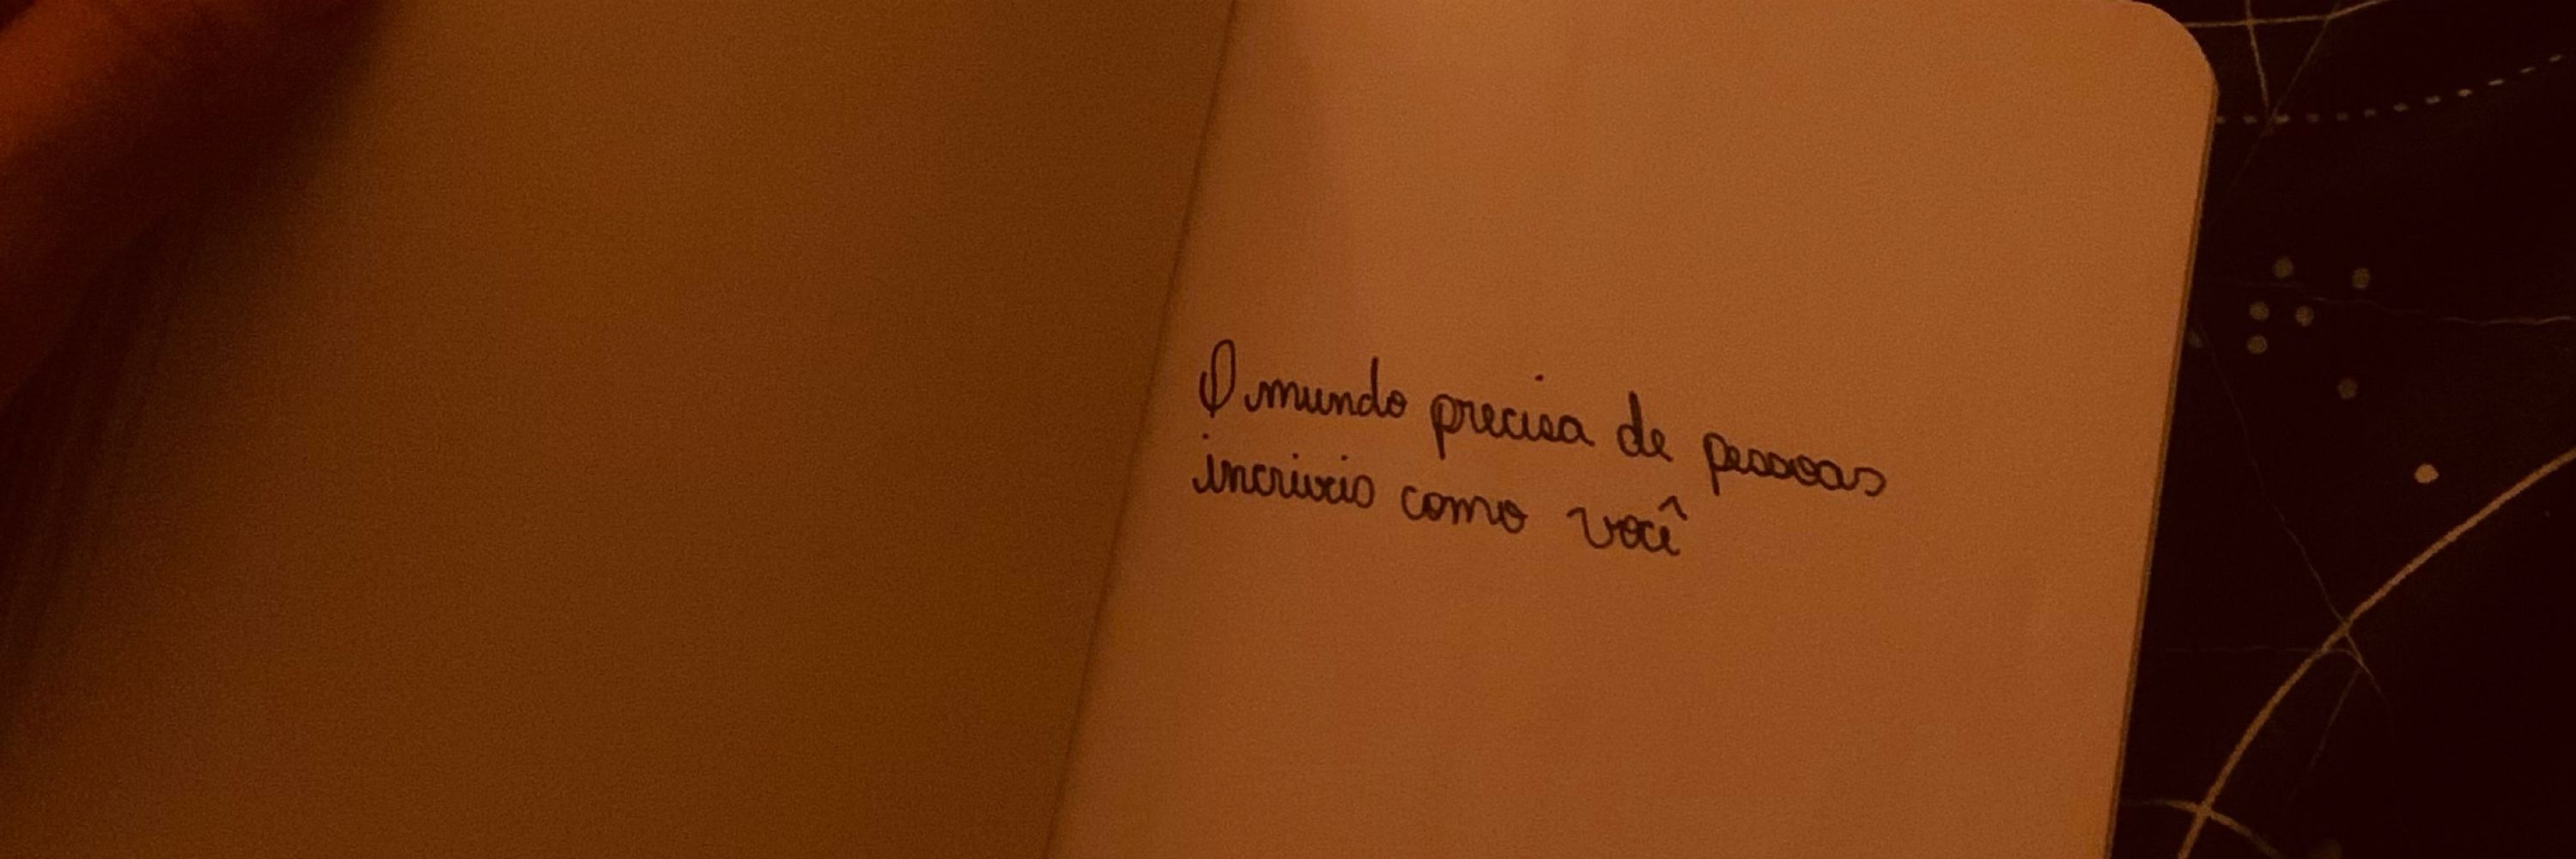 O mundo precisa de pessoas
incriveis como você